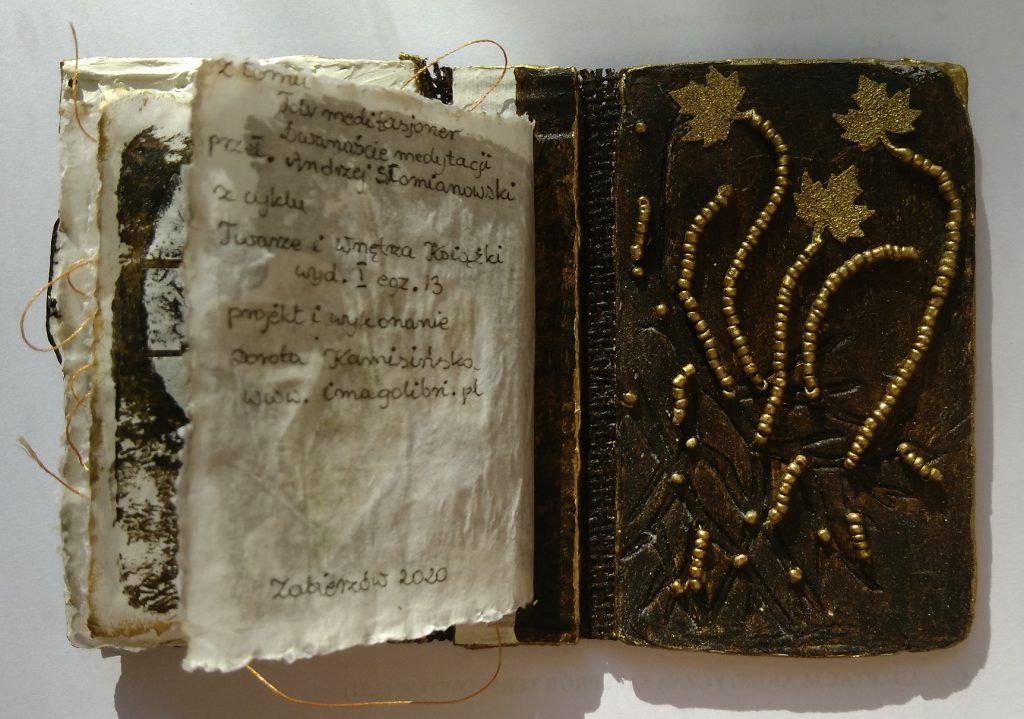 z tomu
Tolv meditasjoner
Dwanaście medytacji
przeł. Andrzej Słomianowski
z cyklu
Twarze i wnętrza Książki
wyd. I egz. 13
projekt i wykonanie
Dorota Kamisińska
www. imagolibri.pl
Zabierzów 2020